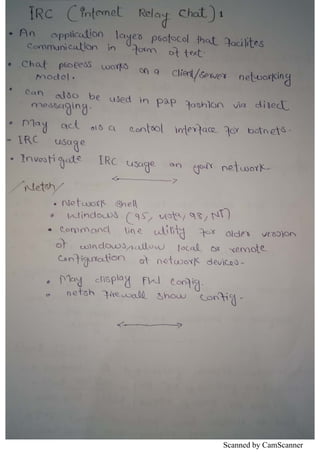 IRC (Internet Relay Chat) :
• An application layer protocol that facilites
communication in form of text.
• Chat process works on a client/server networking
model.
• can also be used in p2p fashion via direct
messaging.
• May act as a control interface for botnets.
- IRC usage
• Investigate IRC usage on your network.
/Netsh/
• Network shell
• windows (95, vista, 98, NT)
• command line utility for older version
of windows, allow local or remote
configuration of network devices.
• May display FW config.
• netsh firewall show config.
Scanned by CamScanner